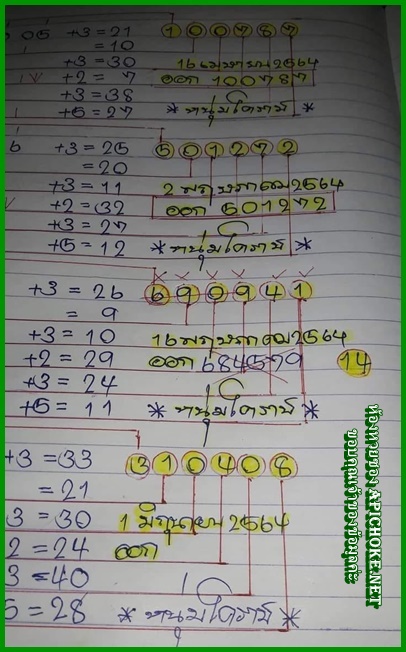 05 +3 = 21 1 0 0 7 8 7
= 10
+3 = 30 16 เมษายน 2564
+2 = 7 ออก 100787
+3 = 38
+5 = 27 * หนุ่มโคราช *
6 +3 = 25 5 0 1 2 7 2
= 20
+3 = 11 2 พฤษภาคม 2564
+2 = 32 ออก 501272
+3 = 27
+5 = 12 * หนุ่มโคราช *
+3 = 26 6 9 0 9 4 1
= 9
+3 = 10 16 พฤษภาคม 2564
+2 = 29 ออก 684579 14
+3 = 24
+5 = 11 * หนุ่มโคราช *
+3 = 33 3 1 0 4 0 8
= 21
3 = 30 1 มิถุนายน 2564
2 = 24 ออก
3 = 40
5 = 28 * หนุ่มโคราช *
ห้องหวยซอง APICHOKE.NET
ขอบคุณเจ้าของข้อมูลค่ะ